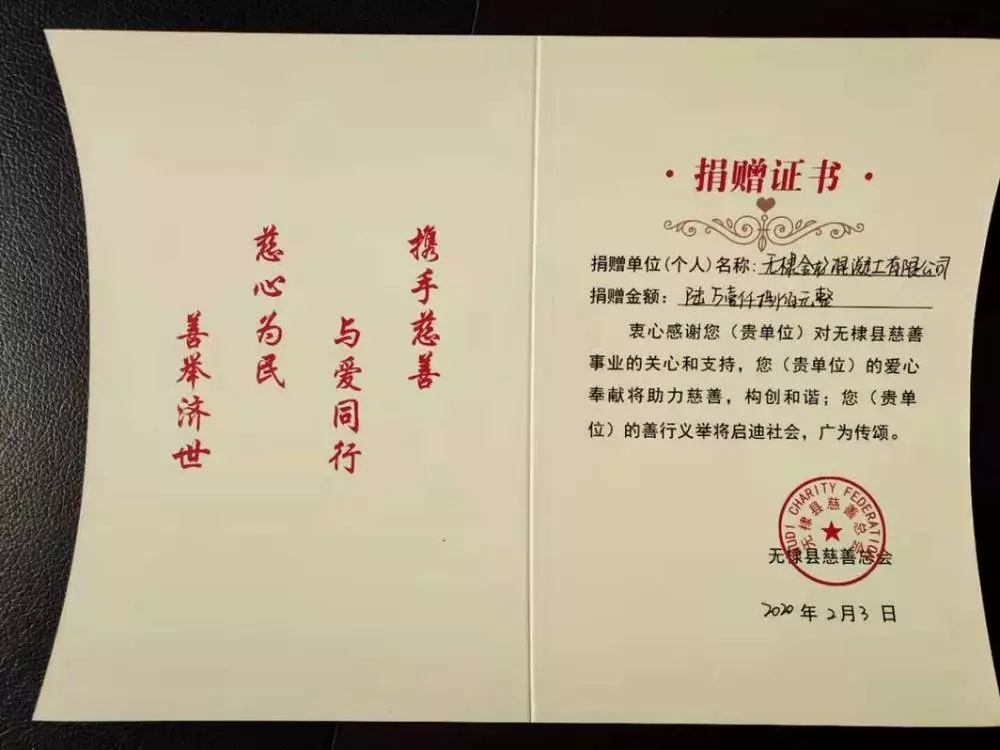 携手慈善
与爱同行
慈心为民
善举济世
捐赠证书
捐赠单位(个人)名称:无棣金 混凝土有限公司
捐赠金额: 陆万壹仟 佰元整
衷心感谢您（贵单位）对无棣县慈善
事业的关心和支持，您（贵单位）的爱心
奉献将助力慈善，构创和谐；您（贵单
位）的善行义举将启迪社会，广为传颂。
UDI CHARITY FEDERATION
无棣县慈善总会
无棣县慈善总会
2020年2月3日